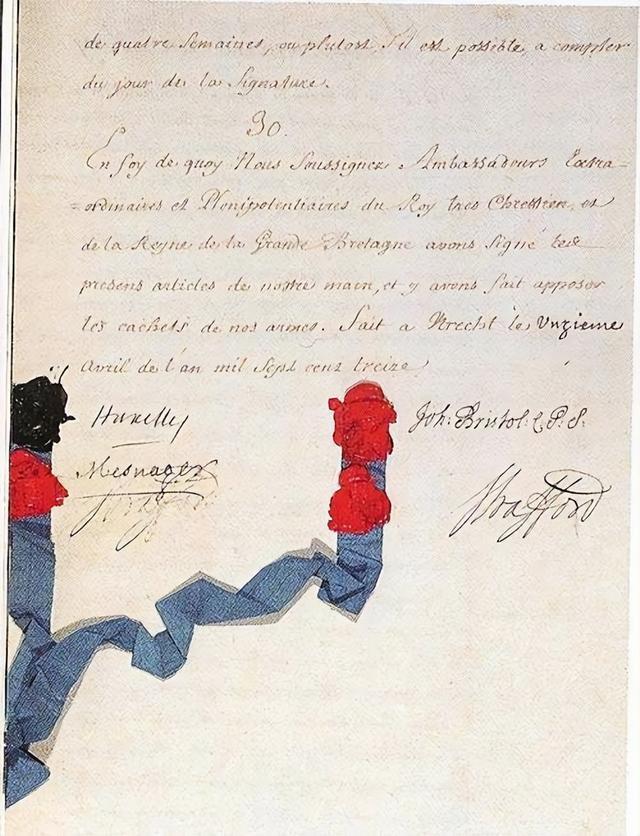 de quatre semaines, ou plutost, s'il est possible, a compter
du jour de la signature.
30.
En foy de quoy Nous soussignez Ambassadeurs Extra-
=ordinaires et Plenipotentiaires du Roy tres Chrestien, et
de la Reyne de la Grande Bretagne avons signé les
presens articles de nostre main, et y avons fait apposer
les cachets de nos armes. Fait a Utrecht le Unzieme
Avril de l'an mil sept cent treize
Huxelles
Joh: Bristol. C.P.S.
Mesnager
Strafford